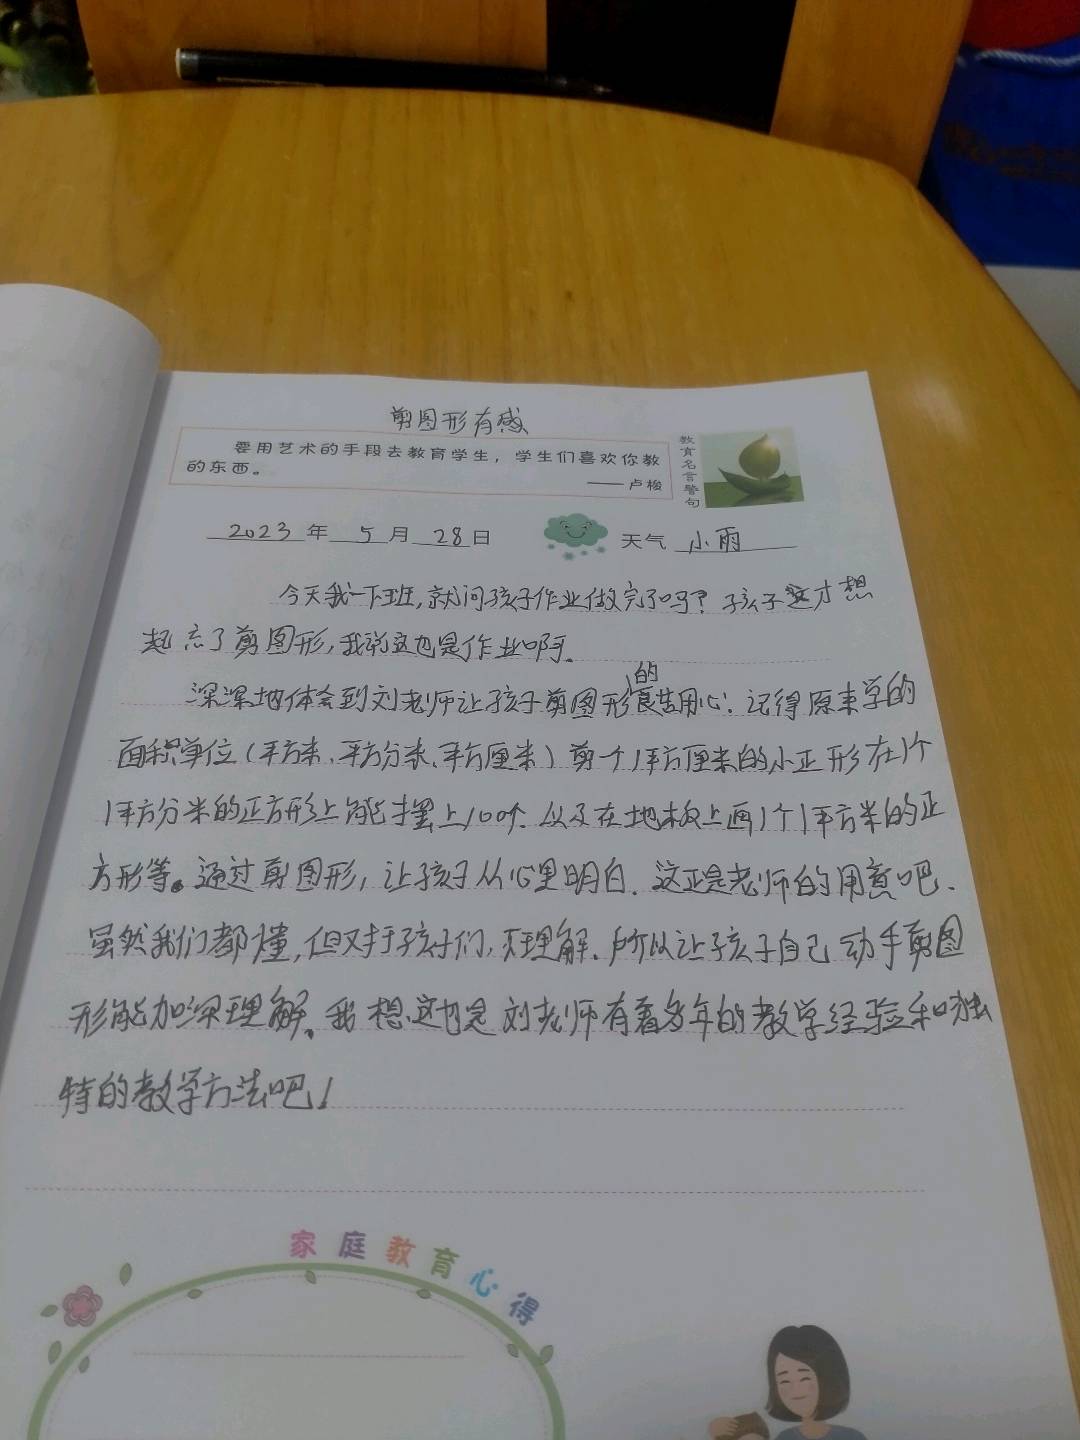 剪图形有感
要用艺术的手段去教育学生，学生们喜欢你教
的东西。
——卢梭
教育名言警句
2023年5月28日 天气 小雨
今天我一下班,就问孩子作业做完了吗？孩子这才想
起忘了剪图形,我说这也是作业啊。
深深地体会到刘老师让孩子剪图形的良苦用心．记得原来学的
面积单位（平方米、平方分米、平方厘米）剪个1平方厘米的小正形在1个
1平方分米的正方形上能摆上100个．以及在地板上画1个1平方米的正
方形等。通过剪图形，让孩子从心里明白．这正是老师的用意吧．
虽然我们都懂,但对于孩子们,不理解．所以让孩子自己动手剪图
形能加深理解。我想这也是刘老师有着多年的教学经验和独
特的教学方法吧！
家庭教育心得